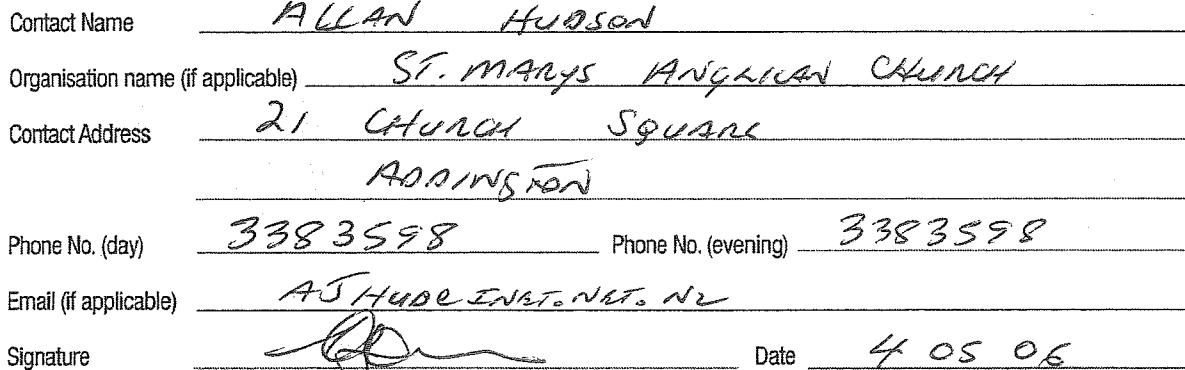 Contact Name ALLAN HUDSON
Organisation name (if applicable) ST. MARYS ANGLICAN CHURCH
Contact Address 21 CHURCH SQUARE
ADDINGTON
Phone No. (day) 3383598 Phone No. (evening) 3383598
Email (if applicable) AJHUD@INET.NET.NZ
Signature Date 4 05 06